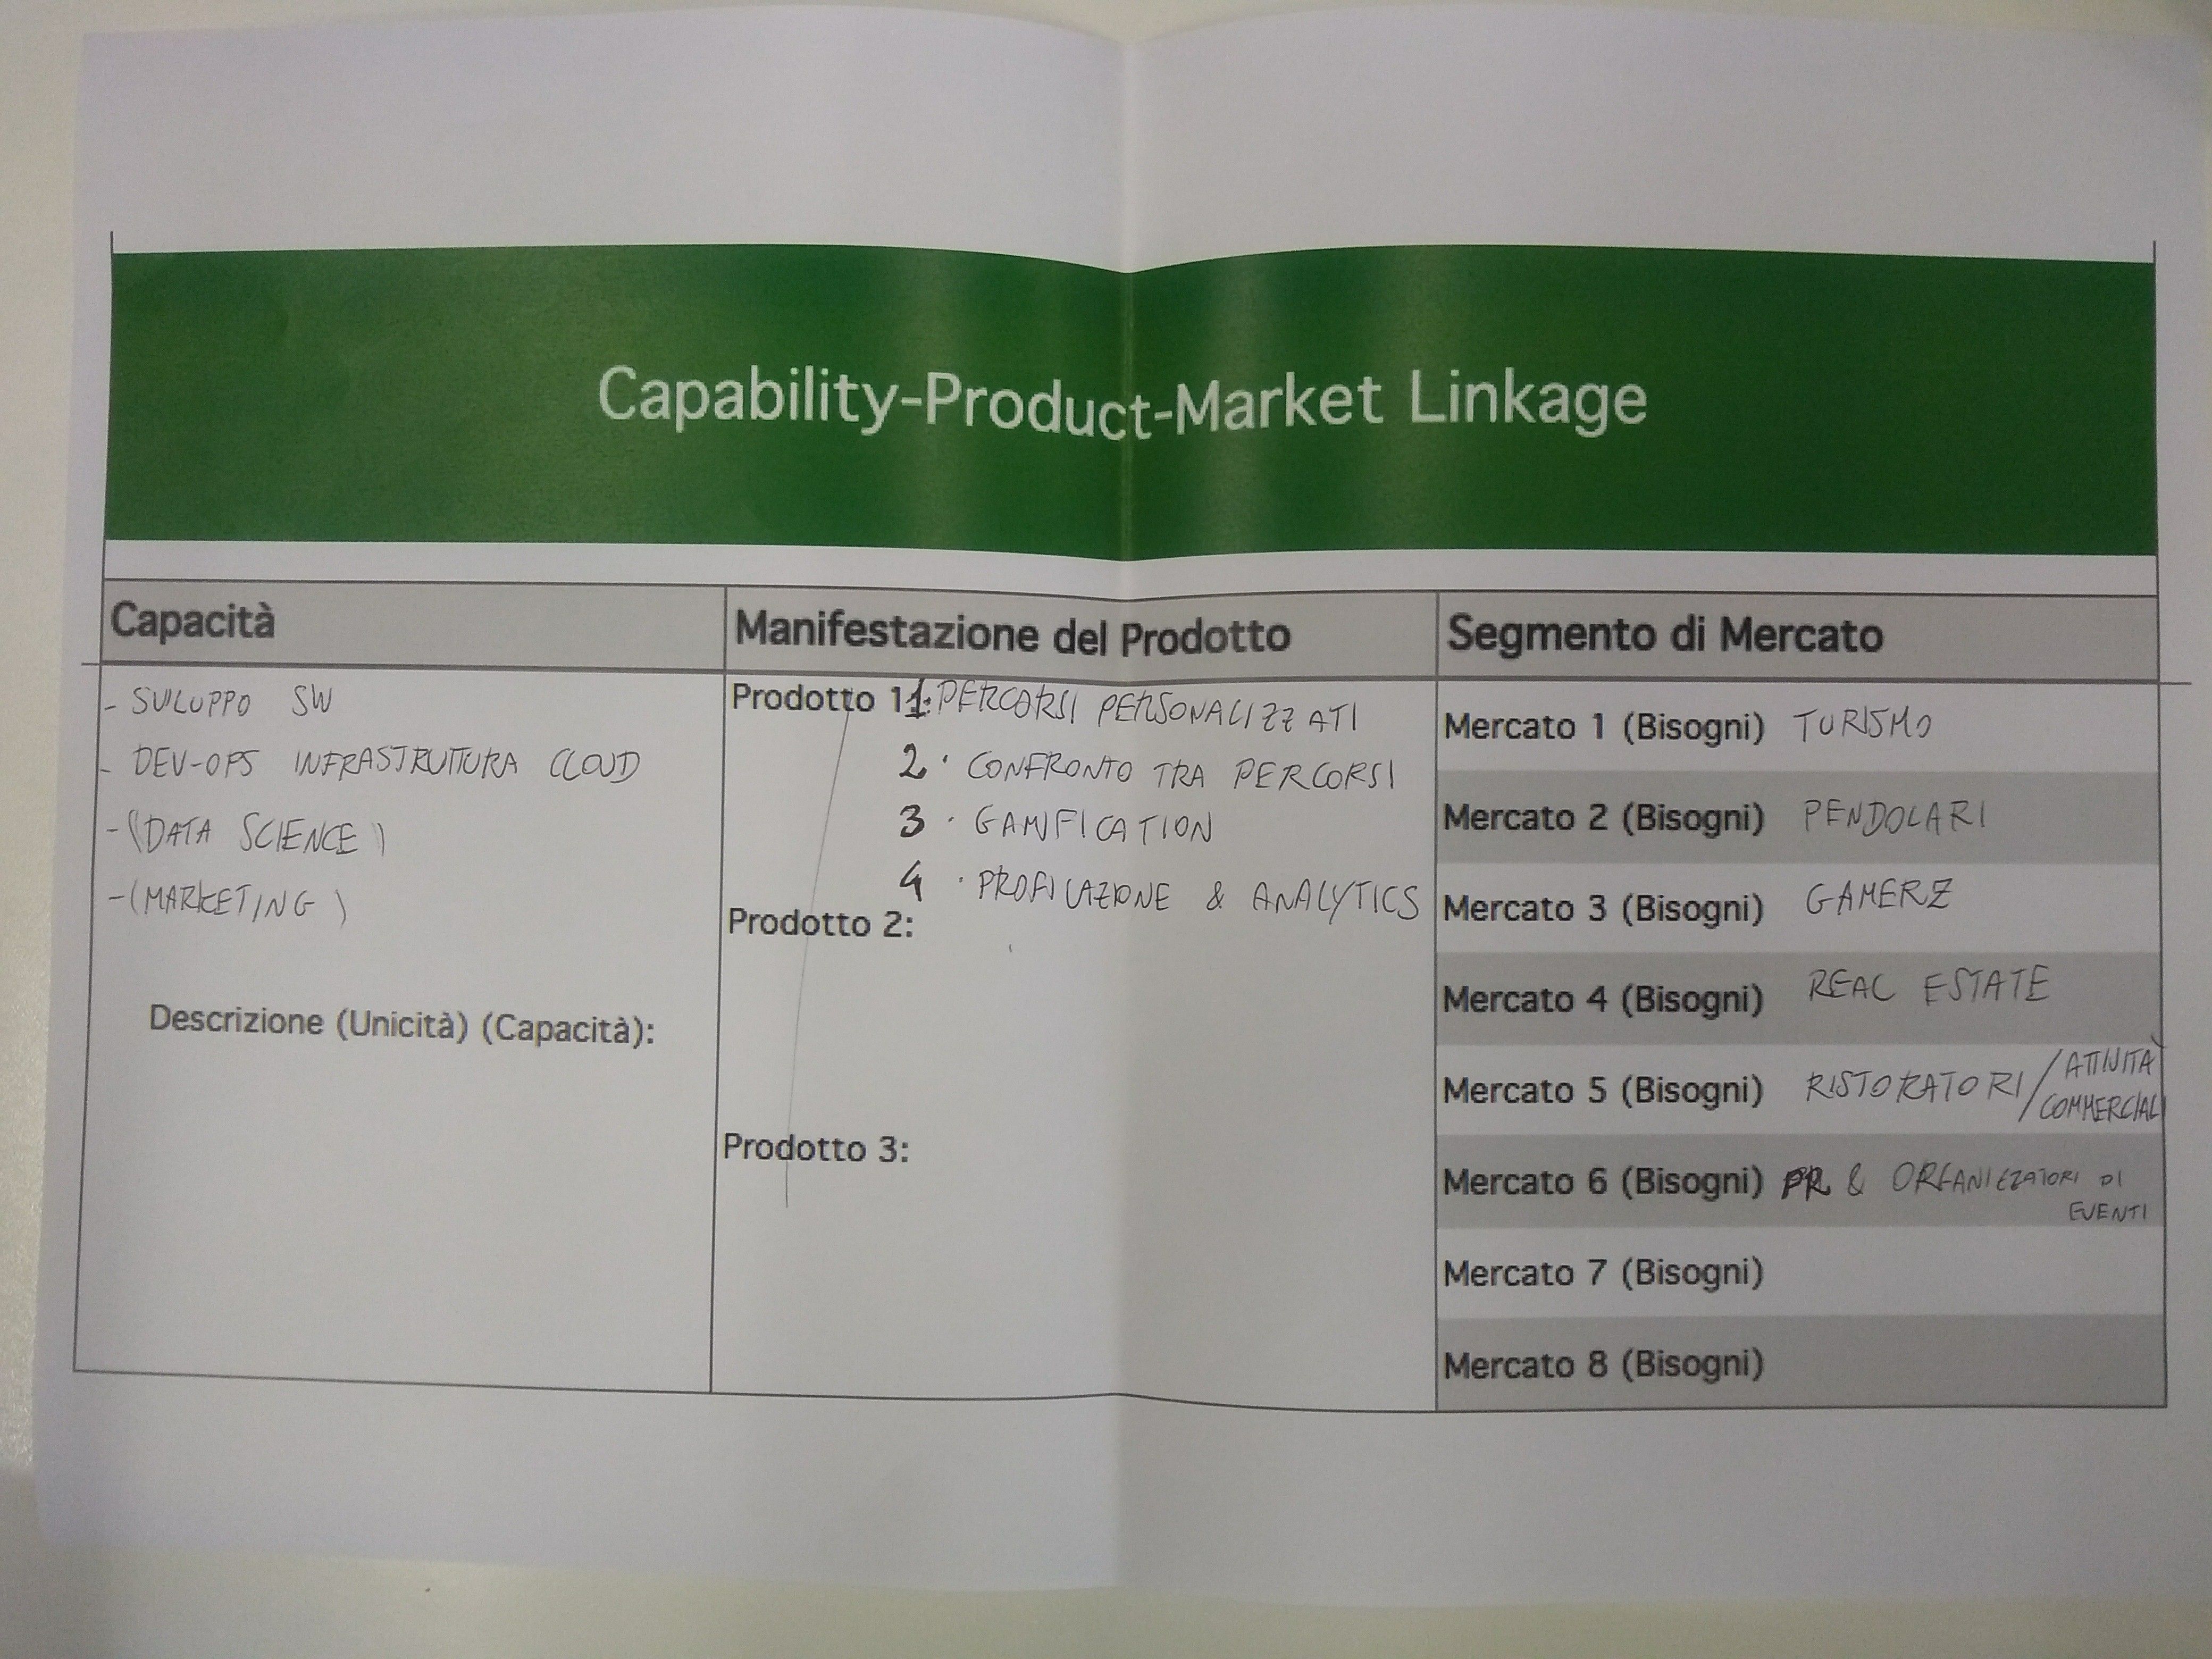 Capability-Product-Market Linkage
Capacità
- SVILUPPO SW
- DEV-OPS INFRASTRUTTURA CLOUD
- (DATA SCIENCE)
- (MARKETING)
Descrizione (Unicità) (Capacità):
Manifestazione del Prodotto
Prodotto 1 1: PERCORSI PERSONALIZZATI
2 · CONFRONTO TRA PERCORSI
3 · GAMIFICATION
4 · PROFILAZIONE & ANALYTICS
Prodotto 2:
Prodotto 3:
Segmento di Mercato
Mercato 1 (Bisogni) TURISMO
Mercato 2 (Bisogni) PENDOLARI
Mercato 3 (Bisogni) GAMERZ
Mercato 4 (Bisogni) REAL ESTATE
Mercato 5 (Bisogni) RISTORATORI / ATTIVITÀ
COMMERCIALI
Mercato 6 (Bisogni) PR & ORGANIZZATORI DI
EVENTI
Mercato 7 (Bisogni)
Mercato 8 (Bisogni)